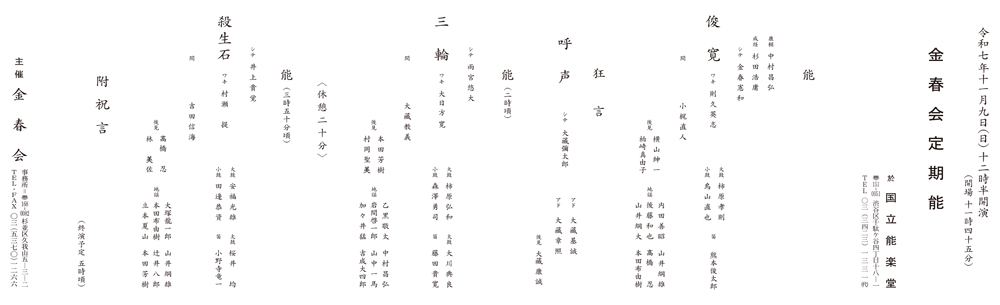 令和七年十一月九日(日)十二時半開演
(開場 十一時四十五分)
金春会定期能
於 国立能楽堂
〠151-0051 渋谷区千駄ケ谷四丁目十八-一
TEL 〇三(三四二三)一三三一㈹
能
康頼 中村昌弘
成経 杉田浩庸
シテ 金春憲和
俊寛
ワキ 則久英志
間 小梶直人
大鼓 柿原孝則
小鼓 鳥山直也
笛 熊本俊太郎
後見 横山紳一
柏崎真由子
地謡 内田善昭 山井綱雄
後藤和也 高橋忍
山井綱大 本田布由樹
狂言
呼声
シテ 大蔵彌太郎
アド 大蔵基誠
アド 大蔵章照
後見 大蔵康誠
能(二時頃)
シテ 雨宮悠大
三輪
ワキ 大日方寛
間 大蔵教義
大鼓 柿原弘和
小鼓 森澤勇司
太鼓 大川典良
笛 藤田貴寛
後見 本田芳樹
村岡聖美
地謡 乙黒敬太 中村昌弘
岩間啓一郎 山中一馬
加々井猛 吉成大四郎
〈休憩二十分〉
能(三時五十分頃)
シテ 井上貴覚
殺生石
ワキ 村瀬提
間 吉田信海
大鼓 安福光雄
小鼓 田邊恭資
太鼓 桜井均
笛 小野寺竜一
後見 高橋忍
林美佐
地謡 大塚龍一郎 山井綱雄
本田布由樹 辻井八郎
立本夏山 本田芳樹
附祝言
(終演予定 五時頃)
主催 金春会
事務所=〠168-0082 杉並区久我山五-三-二
TEL・FAX 〇三(五三七〇)一二六六